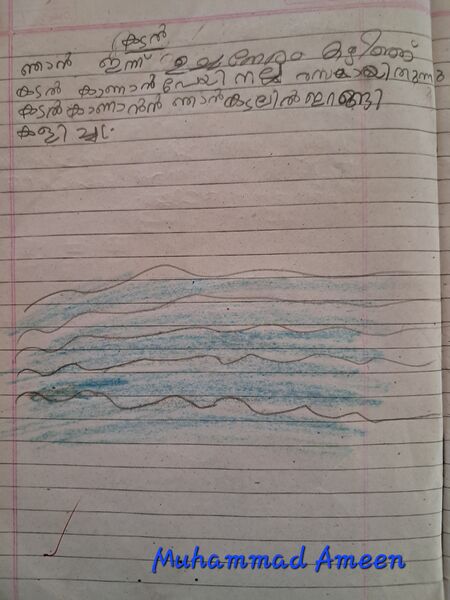 കടൽ
ഞാൻ ഇന്ന് ഉച്ചനേരം കഴിഞ്ഞ്
കടൽ കാണാൻ പോയി നല്ല രസമായിരുന്നു
കടൽകാണാൻൻ ഞാൻ കടലിൽ ഇറങ്ങി
കളിച്ചു.
Muhammad Ameen